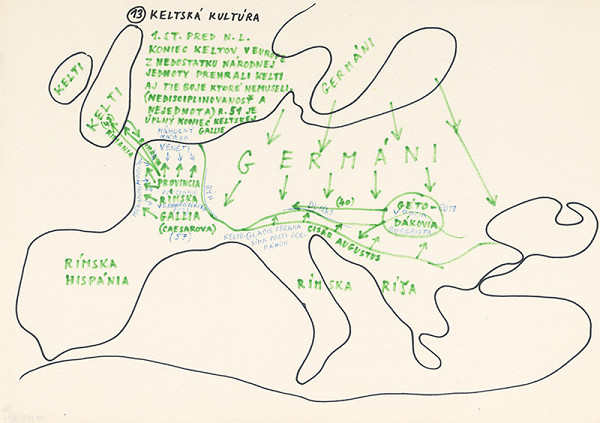 13 KELTSKÁ KULTÚRA
1. ST. PRED N. L.
KONIEC KELTOV V EURÓPE
Z NEDOSTATKU NÁRODNEJ
JEDNOTY PREHRALI KELTI
AJ TIE BOJE KTORÉ NEMUSELI.
(NEDISCIPLINOVANOSŤ A
NEJEDNOTA) R. 51 JE
ÚPLNÝ KONIEC KELTSKEJ
GALLIE
KELTI
KELTI
GERMÁNI
VENETI
GERMÁNI
PROVINCIA
RÍMSKA
GALLIA
(CAESAROVA)
(57)
RÝN
DUNAJ
(40)
GÉTO-
DÁKOVIA
GÓTI
CISÁR AUGUSTUS
RÍMSKA
HISPÁNIA
RÍMSKA RÍŠA